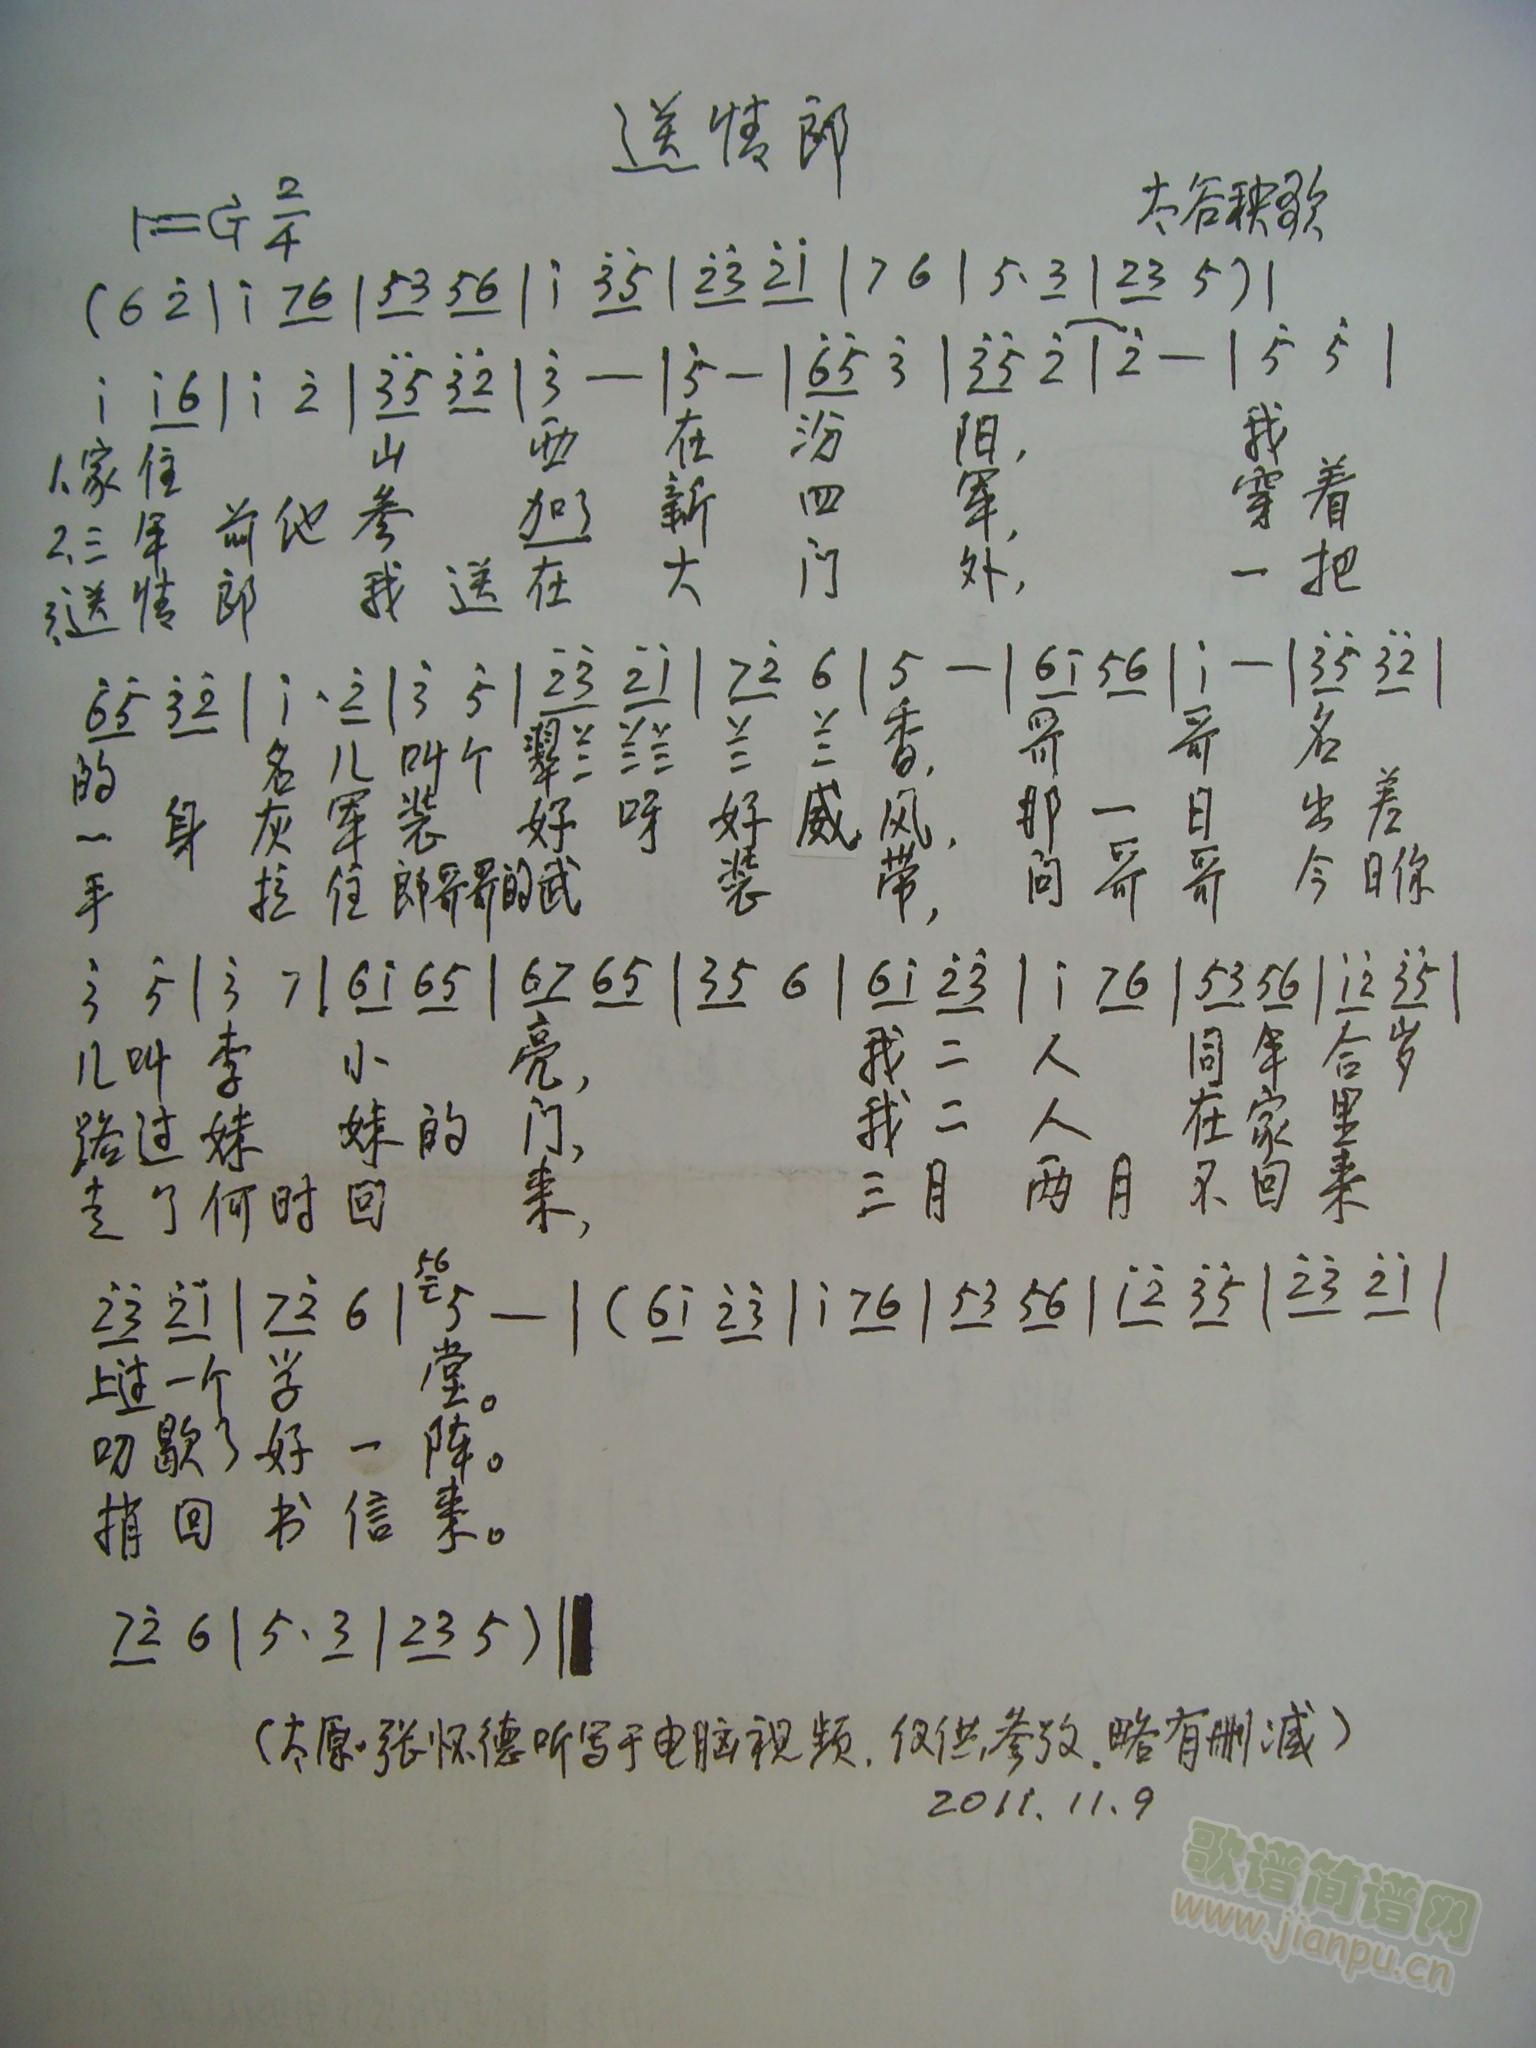 送情郎
1=G 2/4
太谷秧歌
(6 2̇ | i 76 | 53 56 | i 3̇5̇ | 2̇3̇ 2̇i | 7 6 | 5· 3 | 23 5 ) |
i i6 | i 2̇ | 3̇5̇ 3̇2̇ | 3̇ — | 5̇ — | 6̇5̇ 3̇ | 3̇5̇ 2̇ | 2̇ — | 5̇ 5̇ |
1.家住 山 西 在 汾 阳, 我
2.三年 前他 参 加了 新 四 军, 穿 着
3.送情 郎 我 送 在 大 门 外, 一 把
6̇5̇ 3̇2̇ | i · 2̇ | 3̇ 5̇ | 2̇3̇ 2̇i | 72̇ 6 | 5 — | 6i 56 | i — | 3̇5̇ 3̇2̇ |
的 名 儿 叫 个 翠兰 兰兰 兰 兰 香, 哥 哥 名
一 身 灰 军 装 好 呀 好 威 风, 那 一 日 出 差
手 拉 住 郎哥哥的武 装 带, 问 哥 哥 今 日你
3̇ 5̇ | 3̇ 7 | 6i 65 | 67 65 | 35 6 | 6i 2̇3̇ | i 76 | 53 56 | i2̇ 3̇5̇ |
儿 叫 李 小 亮, 我 二 人 同 年 合 岁
路 过 妹 妹 的 门, 我 二 人 在 家 里
走 了 何 时 回 来, 三 月 两 月 不 回 来
2̇3̇ 2̇i | 72̇ 6 | 56 5 — | ( 6i 2̇3̇ | i 76 | 53 56 | i2̇ 3̇5̇ | 2̇3̇ 2̇i |
上过 一个 学 堂。
叨 歇了 好 一 阵。
捎 回 书 信 来。
72̇ 6 | 5· 3 | 23 5 ) ‖
(太原·张怀德听写于电脑视频.仅供参考.略有删减)
2011.11.9
歌谱简谱网
www.jianpu.cn